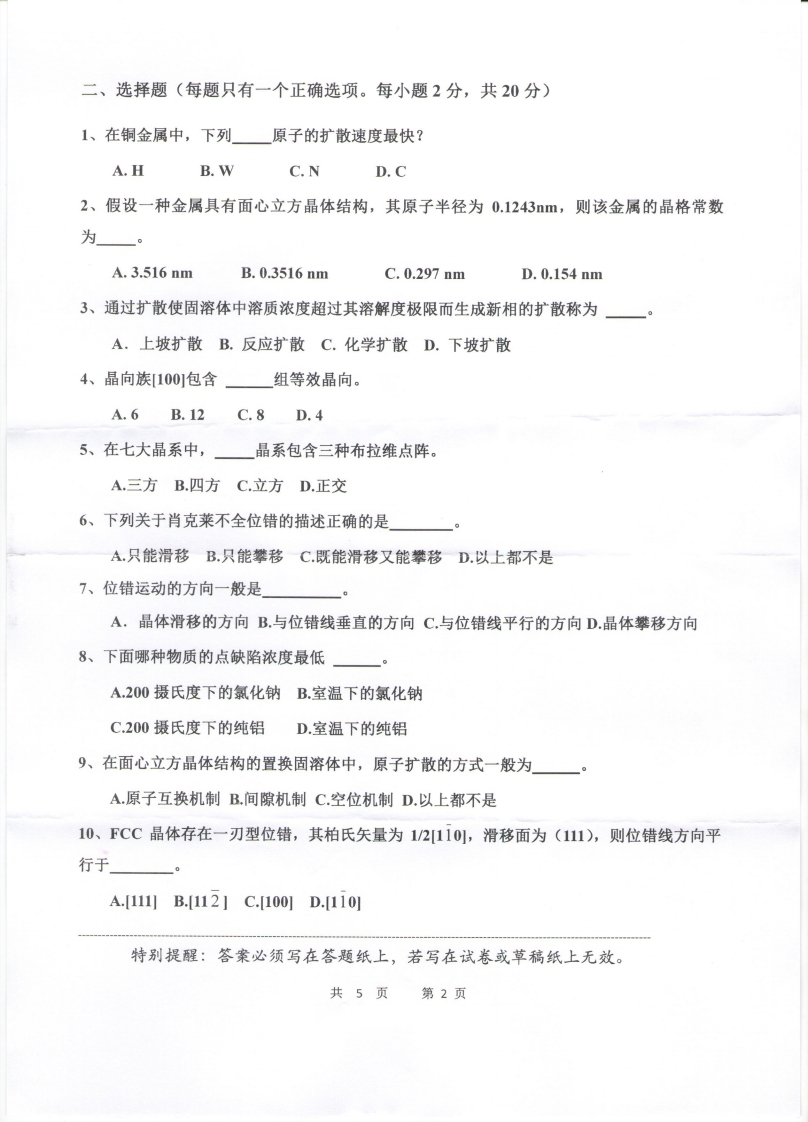 二、选择题（每题只有一个正确选项。每小题 2 分，共 20 分）
1、在铜金属中，下列____原子的扩散速度最快？
A. H B. W C. N D. C
2、假设一种金属具有面心立方晶体结构，其原子半径为 0.1243nm，则该金属的晶格常数
为____。
A. 3.516 nm B. 0.3516 nm C. 0.297 nm D. 0.154 nm
3、通过扩散使固溶体中溶质浓度超过其溶解度极限而生成新相的扩散称为 ____。
A．上坡扩散 B. 反应扩散 C. 化学扩散 D. 下坡扩散
4、晶向族[100]包含 _____组等效晶向。
A. 6 B. 12 C. 8 D. 4
5、在七大晶系中，____晶系包含三种布拉维点阵。
A.三方 B.四方 C.立方 D.正交
6、下列关于肖克莱不全位错的描述正确的是_______。
A.只能滑移 B.只能攀移 C.既能滑移又能攀移 D.以上都不是
7、位错运动的方向一般是________。
A．晶体滑移的方向 B.与位错线垂直的方向 C.与位错线平行的方向 D.晶体攀移方向
8、下面哪种物质的点缺陷浓度最低 _____。
A.200 摄氏度下的氯化钠 B.室温下的氯化钠
C.200 摄氏度下的纯铝 D.室温下的纯铝
9、在面心立方晶体结构的置换固溶体中，原子扩散的方式一般为_____。
A.原子互换机制 B.间隙机制 C.空位机制 D.以上都不是
10、FCC 晶体存在一刃型位错，其柏氏矢量为 1/2[11̄0]，滑移面为（111），则位错线方向平
行于_______。
A.[111] B.[112̄] C.[100] D.[11̄0]
特别提醒：答案必须写在答题纸上，若写在试卷或草稿纸上无效。
共 5 页 第 2 页